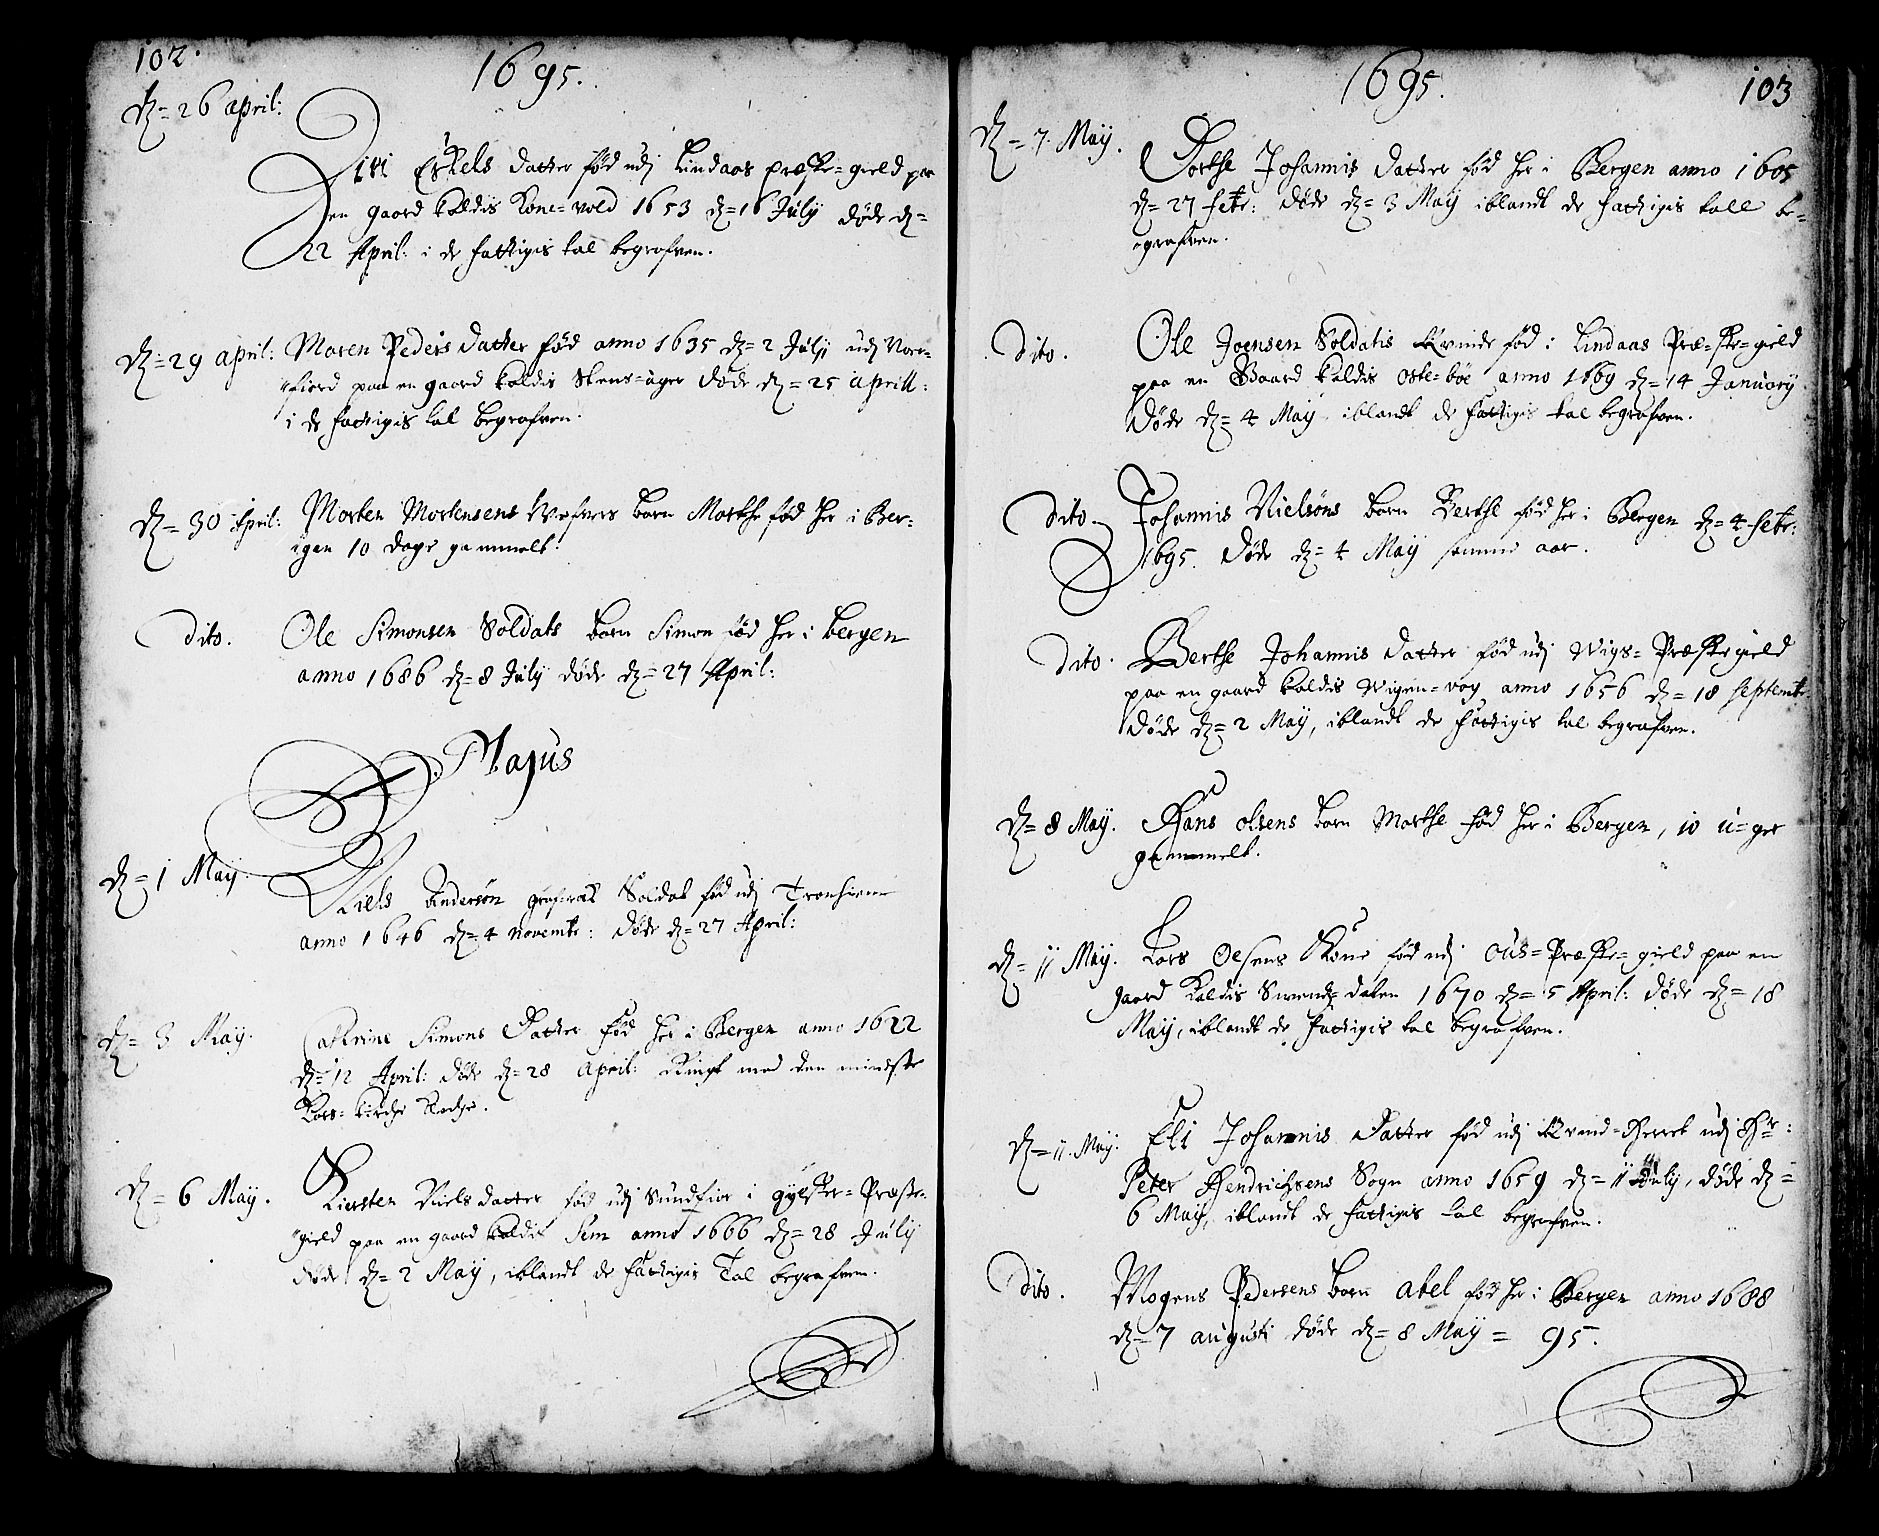 102.
1695.
dz= 26 april:
Siri Eskels datter fød udj Lindaas præste=gield paa
en gaard kaldis Kone=vold 1653 dz=16 Julÿ døde dz=
22 April: i de fattigis tal begrafven.
dz= 29 april: Maren Peders datter fød anno 1635 dz= 2 Julÿ udj Nor=
fiord paa en gaard kaldis Stens=ager døde dz= 25 aprill:
i de fattigis tal begrafven.
dz= 30 April: Morten Mortensens Wæfvers barn Marthe fød her i Ber=
gen 10 dage gammelt.
dito. Ole Simonsen Soldats barn Simon fød her i bergen
anno 1686 dz= 8 Julÿ døde dz= 27 April:
Majus
dz= 1 Maÿ. Niels Andersøn Soldat fød udj Tronhiem
anno 1646 dz= 4 novembr: døde dz= 27 April:
dz= 3 Maÿ. Cathrine Simons Datter fød her i Bergen anno 1622
dz= 12 April: døde dz= 28 april: Ringt med den mindste
Kors=kirche Klocke.
dz= 6 Maÿ. Kiersten Niels datter fød udj Sundfior i gÿlster=Præste=
gield paa en gaard kaldis Sem anno 1666 dz= 28 Julÿ
døde dz= 2 Maÿ, iblandt de fattigis Tal begrafven.
1695.
103
dz= 7. Maÿ. Dorthe Johannis datter fød her i Bergen anno 1605
dz= 27 febr: døde dz= 3 Maÿ iblandt de fattigis tall be=
grafven.
Dito. Ole Joensen Soldatis Kvinde fød i Lindaas Præ=ste=gield
paa en Gaard kaldis Oste=bøe anno 1669 dz= 14 Januarÿ
døde dz= 4 Maÿ iblandt de fattigis tal begrafven.
dito. Johannis Nielsøns barn Berthe fød her i Bergen dz= 4 febr:
1695. døde dz= 4 Maÿ samme aar.
dito. Berthe Johannis datter fød udj Wigs=Præstegield
paa en gaard kaldis Wigen=vog anno 1656 dz= 18 septembr:
døde dz= 2 Maÿ, iblandt de fattigis tal begrafven.
dz= 8 Maÿ. Hans olsens barn Marthe fød her i Bergen, 10 u=ger
gammelt.
dz= 11 Maÿ. Lars Olsens Kone fød udj Ous=Præste=gield paa en
gaard kaldis Svendz dalen 1670 dz= 5 April: døde dz= 18
Maÿ, iblandt de fattigis tal begrafven.
dz= 11. Maÿ. Eli Johannis Datter fød udj Kvind=Herret udj Hr:
Peter Hendrichsens Sogn anno 1659 dz= 11 July, døde dz=
6 Maÿ, iblandt de fattigis tal begrafven.
dito. Mogens Pedersens barn abel fød her i Bergen anno 1688
dz= 7 augusti døde dz= 8 Maÿ = 95.